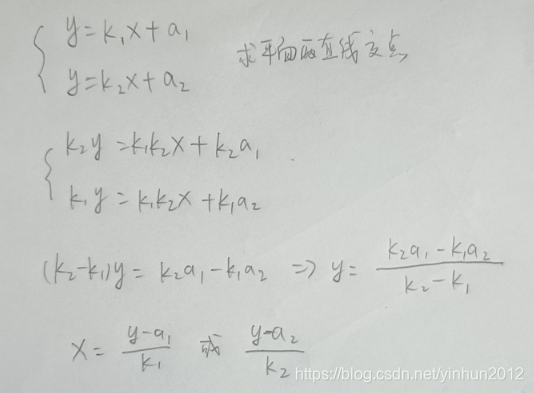 y=k₁x+a₁ 求平面两直线交点
y=k₂x+a₂
k₂y=k₁k₂x+k₂a₁
k₁y=k₁k₂x+k₁a₂
(k₂-k₁)y=k₂a₁-k₁a₂ => y=(k₂a₁-k₁a₂)/(k₂-k₁)
x=(y-a₁)/k₁ 或 (y-a₂)/k₂
https://blog.csdn.net/yinhun2012